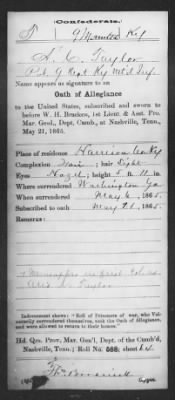 Confederate.
T 9 Mounted Ky
A. C. Taylor
Pvt. G Regt. Ky. Mt'd Inf.
Name appears as signature to an
Oath of Allegiance
to the United States, subscribed and sworn to
before W. H. Bracken, 1st Lieut. & Asst. Pro.
Mar. Genl., Dept. Cumb., at Nashville, Tenn.,
May 21, 1865.
Place of residence Harrison Co Ky
Complexion Fair ; hair Light
Eyes Hazel ; height 5 ft. 11 in.
Where surrendered Washington Ga
When surrendered May 6 , 1865.
Subscribed to oath May 21 , 1865.
Remarks:
Name appears in
Taylor
Indorsement shows: "Roll of Prisoners of war, who Vol-
untarily surrendered themselves, took the Oath of Allegiance,
and were allowed to return to their homes."
Hd. Qrs. Prov. Mar. Gen'l, Dept. of the Cumb'd,
Nashville, Tenn.; Roll No. 588; sheet 4
Copyist.